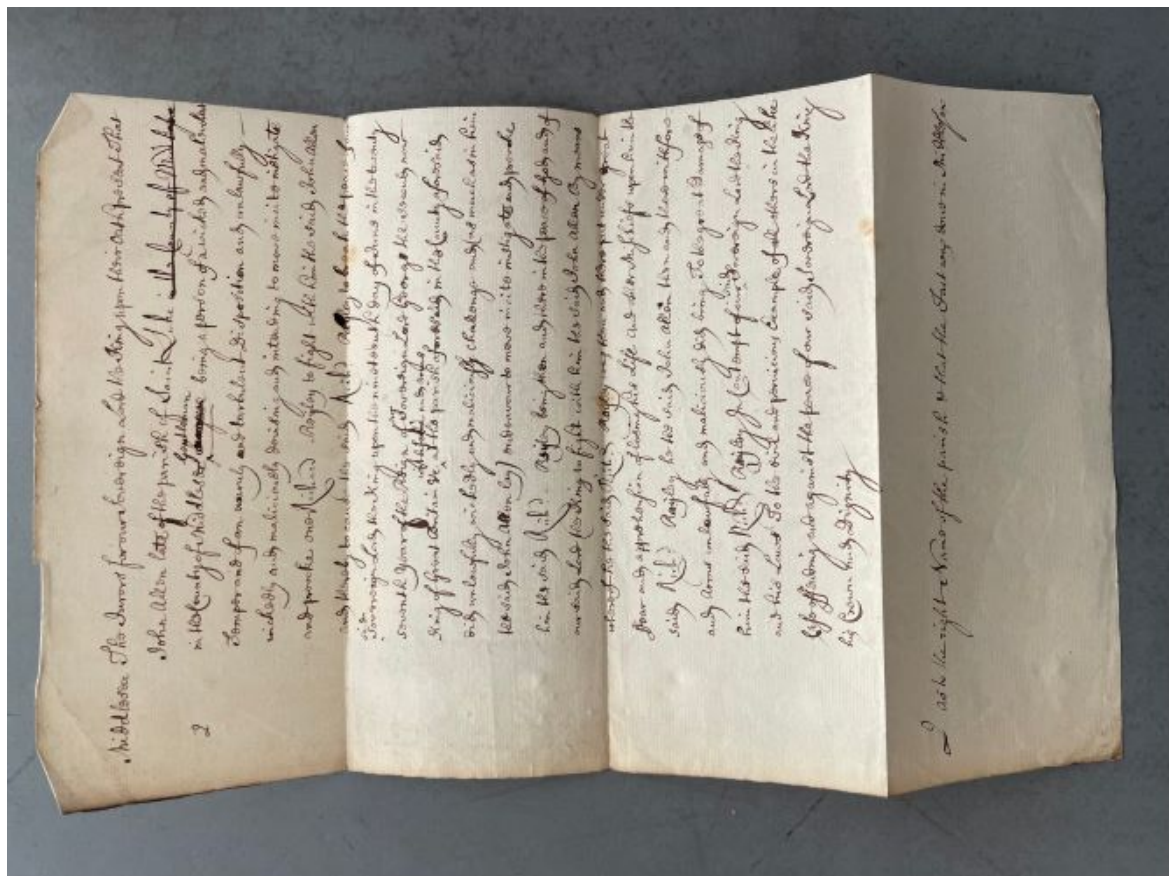 Middlesex The Jurors for our Sovereign Lord the King upon their Oath present That
John Allen late of the parish of Saint Luke in the County of Middlesex
2 in the County of Middlesex Gentleman being a person of a wicked and malicious
Temper and for an unruly and turbulent Disposition and unlawfully
wickedly and maliciously devising and intending to move incite instigate
and provoke one Richard Bayley to fight with him the said John Allen
and thereby to cause the said Richd Bayley to break the peace of our
said
Sovereign Lord the King upon the nineteenth day of June in the twenty
seventh year of the Reign of Sovereign Lord George the Second now
King of Great Britain &c at the parish aforesaid in the County aforesaid
did unlawfully wickedly and maliciously challenge and as much as in him
the said John Allen lay) endeavour to move incite instigate and provoke
him the said Richd Bayley being then and there in the peace of God and of
our said Lord the King to fight with him the said John Allen By means
whereof he the said Richd Bayley was then and there put under great
Fear and apprehension of loosing his Life and other Mischiefs upon him the
said Richd Bayley he the said John Allen then and there with force
and Arms unlawfully and maliciously did bring To the great Damage of
him the said Richd Bayley In Contempt of our said Sovereign Lord the King
and his Laws To the Evil and pernicious Example of all others in the like
Case offending and against the peace of our said Sovereign Lord the King
his Crown and Dignity
Q as to the right Name of the parish & that the Fact was done in Middlesex